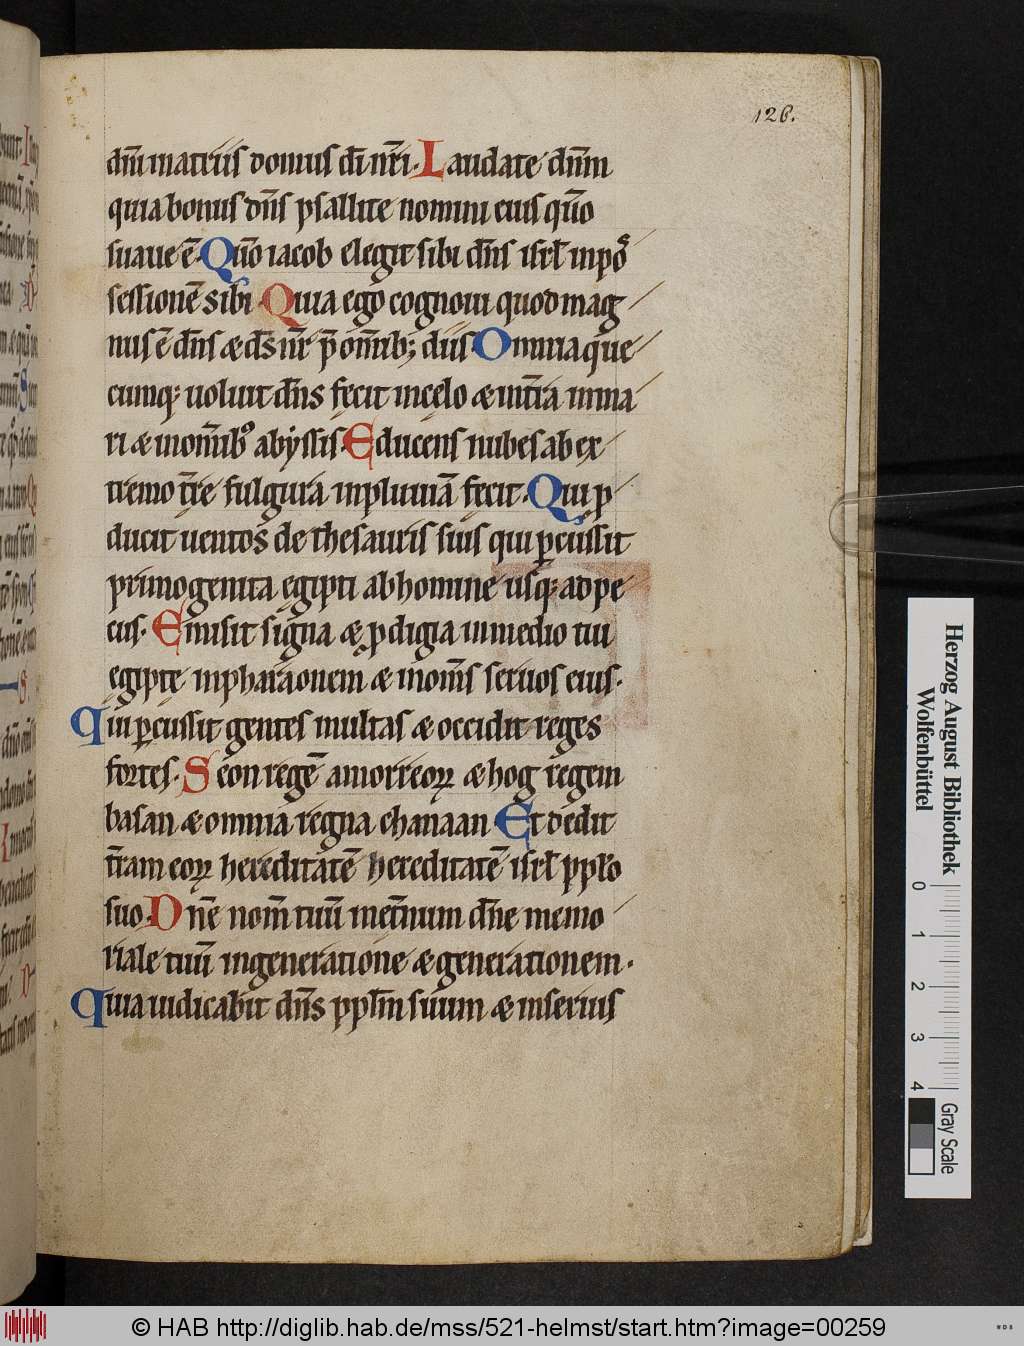 126.
dm̄ in atriis domus dī nr̄i. Laudate dn̄m
quia bonus dn̄s psallite nomini eius qm̄o
suaue ē. Qm̄o iacob elegit sibi dn̄s isrł in pos
sessionē sibi. Quia ego cognoui quod mag
nus ē dn̄s & ds̄ nr̄ p̄ om̄ib; diis. Omnia que
cumq; uoluit dn̄s fecit in celo & in tr̄a in ma
ri & in om̄ibꝰ abyssis. Educens nubes ab ex
tremo tr̄e fulgura in pluuiā fecit. Qui ꝓ
ducit uentos de thesauris suis qui ꝑcussit
primogenita egipti ab homine usq; ad pe
cus. Emisit signa & ꝓdigia in medio tui
egipte in pharaonem & in om̄s seruos eius.
Qui ꝑcussit gentes multas & occidit reges
fortes. Seon regē amorreoꝝ & hog regem
basan & omnia regna chanaan. Et dedit
tr̄am eoꝝ hereditatē hereditatē isrł ppło
suo. Dn̄e nom̄ tuū in et̄num dn̄e memo
riale tuū in generatione & generationem.
Quia iudicabit dn̄s ppłm suum & in seruis
Herzog August Bibliothek
Wolfenbüttel
0 1 2 3 4
Gray Scale
© HAB http://diglib.hab.de/mss/521-helmst/start.htm?image=00259